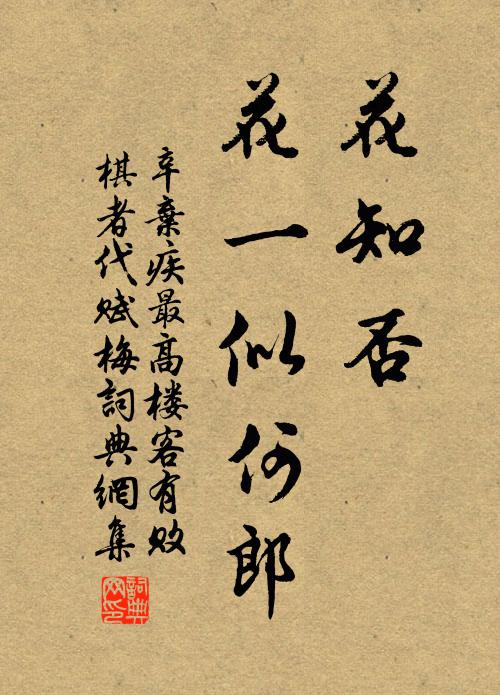 花知否
花一似何郎
辛棄疾最高楼客有败
棋者代赋梅詞典網集
詞典网印